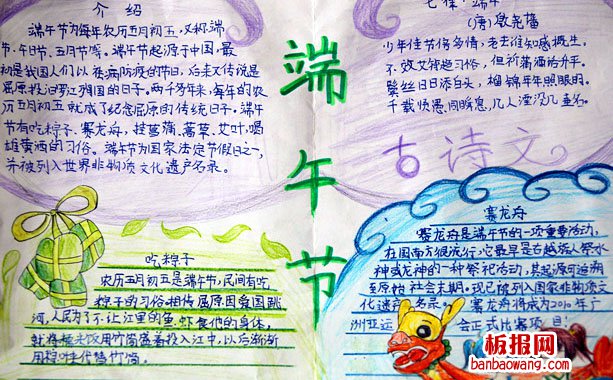 介 绍
端午节为每年农历五月初五，又称端
节、午日节、五月节等。端午节起源于中国，最
初是我国人们以祛病防疫的节日，后来又传说是
屈原投汨罗江殉国的日子。两千多年来，每年的农
历五月初五就成了纪念屈原的传统日子。端午
节有吃粽子、赛龙舟，挂菖蒲、蒿草、艾叶，喝
雄黄酒的习俗。端午节为国家法定节假日之一，
并被列入世界非物质文化遗产名录。
端
午
节
七律·端午
（唐）殷尧藩
少年佳节倍多情，老去谁知感慨生，
不效艾符趋习俗，但祈蒲酒话升平。
鬓丝日日添白头，榴锦年年照眼明，
千载贤愚同瞬息，几人湮没几垂名。
古诗文
吃粽子
农历五月初五是端午节，民间有吃
粽子的习俗。相传屈原因爱国跳
河，人民为了不让江里的鱼、虾食他的身体，
就将糯米饭用竹筒盛着投入江中，以后渐渐
用粽叶代替竹筒。
赛龙舟
赛龙舟是端午节的一项重要活动，
在国南方很流行，它最早是古越族人祭水
神或龙神的一种祭祀活动，其起源可追溯
至原始社会末期。现已被列入国家非物质文
化遗产名录。赛龙舟将成为2010年广
州亚运会正式比赛项目！
板报网
banbaowang.com